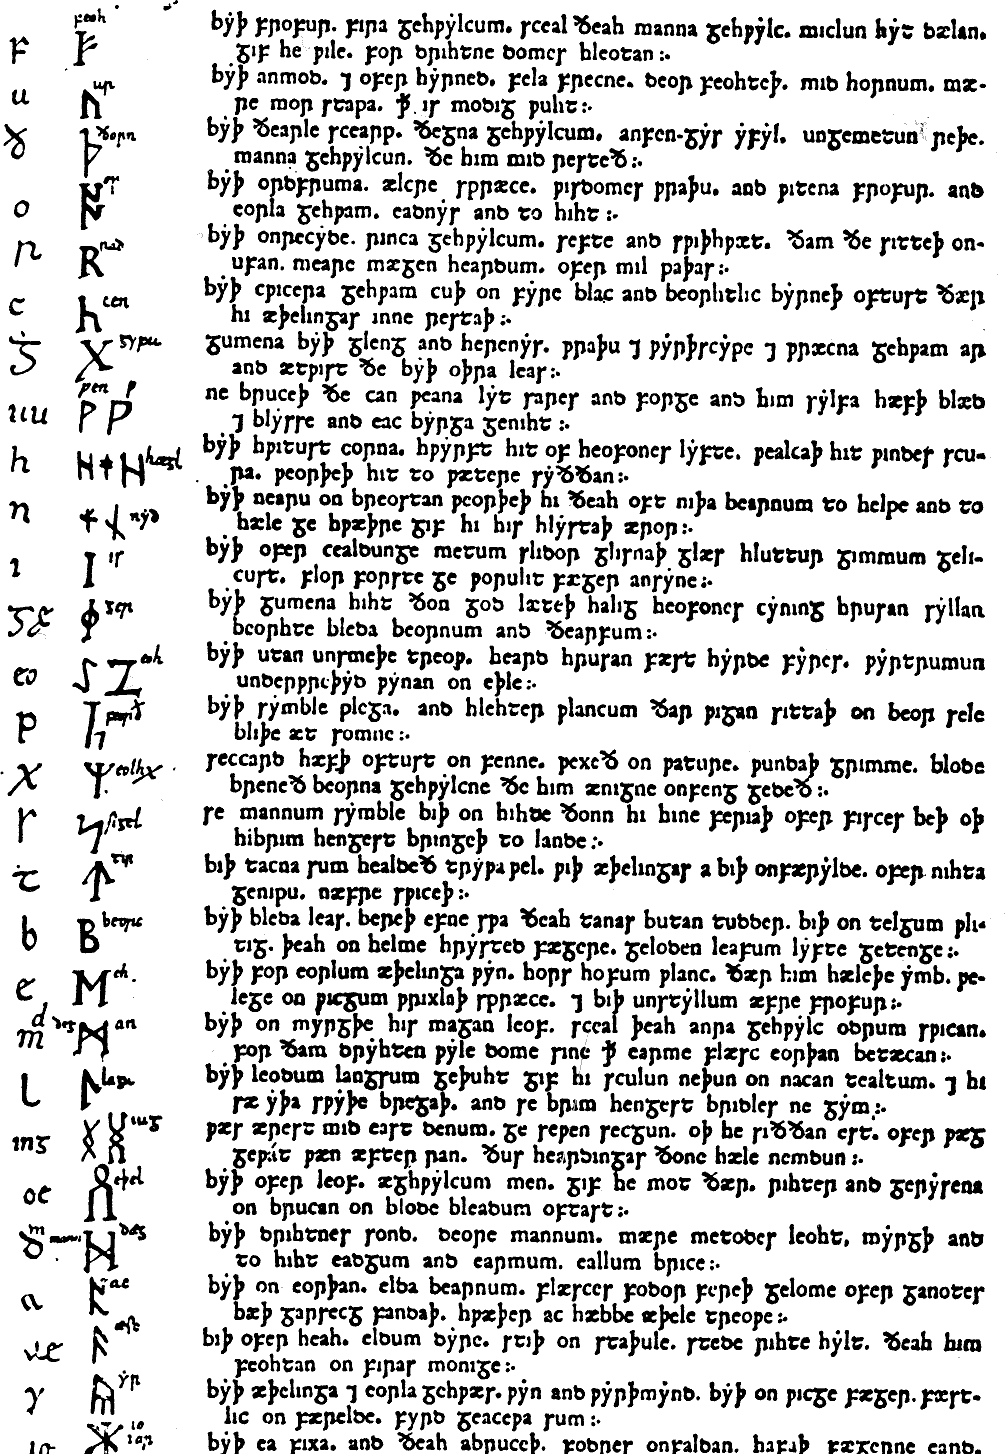 feoh
f ᚠ bẏþ frofur. fira gehƿẏlcum. sceal ðeah manna gehƿẏlc. miclun hẏt dælan.
gif he ƿile. for drihtne domes hleotan :.
u ᚢ ur bẏþ anmod. ⁊ ofer hẏrned. fela frecne. deor feohteþ. mid hornum. mæ-
re mor stapa. ꝥ is modig ƿuht :.
ð ᚦ ðorn bẏþ ðearle scearp. ðegna gehƿẏlcum. anfen-gẏs ẏfẏl. ungemetun reþe.
manna gehƿẏlcun. ðe him mid resteð :.
o ᚩ os bẏþ ordfruma. ælcre spræce. ƿisdomes ƿraþu. and ƿitena frofur. and
eorla gehƿam. eadnẏs and to hiht :.
r ᚱ rad bẏþ onrecẏde. rinca gehƿẏlcum. sefte and sƿiþhƿæt. ðam ðe sitteþ on-
ufan. meare mægen heardum. ofer mil paþas :.
c ᚳ cen bẏþ cƿicera gehƿam cuþ on fẏre blac and beorhtlic bẏrneþ oftust ðær
hi æþelingas inne restaþ :.
g ᚷ gẏfu gumena bẏþ gleng and herenẏs. ƿraþu ⁊ ƿẏrþscẏpe ⁊ ƿræcna gehƿam ar
and ætƿist ðe bẏþ oþra leas :.
uu ᚹ ƿen ne bruceþ ðe can ƿeana lẏt sares and sorge and him sẏlfa hæfþ blæd
⁊ blẏsse and eac bẏrga geniht :.
h ᚻ hægl bẏþ hƿitust corna. hƿẏrft hit of heofones lẏfte. ƿealcaþ hit ƿindes scu-
ra. ƿeorþeþ hit to ƿætere sẏððan :.
n ᚾ nẏd bẏþ nearu on breostan ƿeorþeþ hi ðeah oft niþa bearnum to helpe and to
hæle ge hƿæþre gif hi his hlẏstaþ æror :.
i ᛁ is bẏþ ofer cealdunge metum slidor glisnaþ glæs hluttur gimmum geli-
cust. flor forste ge ƿoruht fæger ansẏne :.
gæ ᛄ ger bẏþ gumena hiht ðon god læteþ halig heofones cẏning hrusan sẏllan
beorhte bleda beornum and ðearfum :.
eo ᛇ eoh bẏþ utan unsmeþe treoƿ. heard hrusan fæst hẏrde fẏres. ƿẏrtrumun
underƿreþẏd ƿẏnan on eþle :.
p ᛈ peorð bẏþ sẏmble plega. and hlehter ƿlancum ðar ƿigan sittaþ on beor sele
bliþe æt somne :.
x ᛉ eolhx seccard hæfþ oftust on fenne. ƿexeð on ƿature. ƿundaþ grimme. blode
breneð beorna gehƿẏlcne ðe him ænigne onfeng gedeð :.
s ᛋ sigel se mannum sẏmble biþ on hihte ðonn hi hine feriaþ ofer fisces beþ oþ
hibrim hengest bringeþ to lande :.
t ᛏ tir biþ tacna sum healdeð trẏƿa ƿel. ƿiþ æþelingas a biþ onfærẏlde. ofer nihta
genipu. næfre sƿiceþ :.
b ᛒ beorc bẏþ bleda leas. bereþ efne sƿa ðeah tanas butan tudder. biþ on telgum ƿli-
tig. þeah on helme hrẏsted fægere. geloden leafum lẏfte getenge :.
e ᛖ eh. bẏþ for eorlum æþelinga ƿẏn. hors hofum ƿlanc. ðær him hæleþe ẏmb. ƿe-
lege on ƿicgum ƿrixlaþ spræce. ⁊ biþ unstẏllum æfre frofur :.
m d ᛗ deg an bẏþ on mẏrgþe his magan leof. sceal þeah anra gehƿẏlc odrum sƿican.
for ðam drẏhten ƿẏle dome sine ꝥ earme flæsc eorþan betæcan :.
l ᛚ lagu bẏþ leodum langsum geþuht gif hi sculun neþun on nacan tealtum. ⁊ hi
sæ ẏþa sƿẏþe bregaþ. and se brim hengest bridles ne gẏm :.
ing ᛝ ing ƿæs ærest mid east denum. ge seƿen secgun. oþ he siððan est. ofer ƿæg
geƿát ƿæn æfter ran. ðus heardingas ðone hæle nemdun :.
oe ᛟ eþel bẏþ ofer leof. æghƿẏlcum men. gif he mot ðær. rihter and gerẏsena
on brucan on blode bleadum oftast :.
ð m mann ᛞ dæg bẏþ drihtnes sond. deore mannum. mære metodes leoht, mẏrgþ and
to hiht eadgum and earmum. eallum brice :.
a ᚪ ac bẏþ on eorþan. elda bearnum. flæsces fodor fereþ gelome ofer ganotes
bæþ garsecg fandaþ. hƿæþer ac hæbbe æþele treoƿe :.
æ ᚫ æsc biþ ofer heah. eldum dẏre. stiþ on staþule. stede rihte hẏlt. ðeah him
feohtan on firas monige :.
y ᚣ ẏr bẏþ æþelinga ⁊ eorla gehƿæs. ƿẏn and ƿẏrþmẏnd. bẏþ on ƿicge fæger. fæst-
lic on færelde. fẏrd geacepa sum :.
io ᛡ io iar bẏþ ea fixa. and ðeah abruceþ. fodres onfaldan. hafaþ fægerne eard.